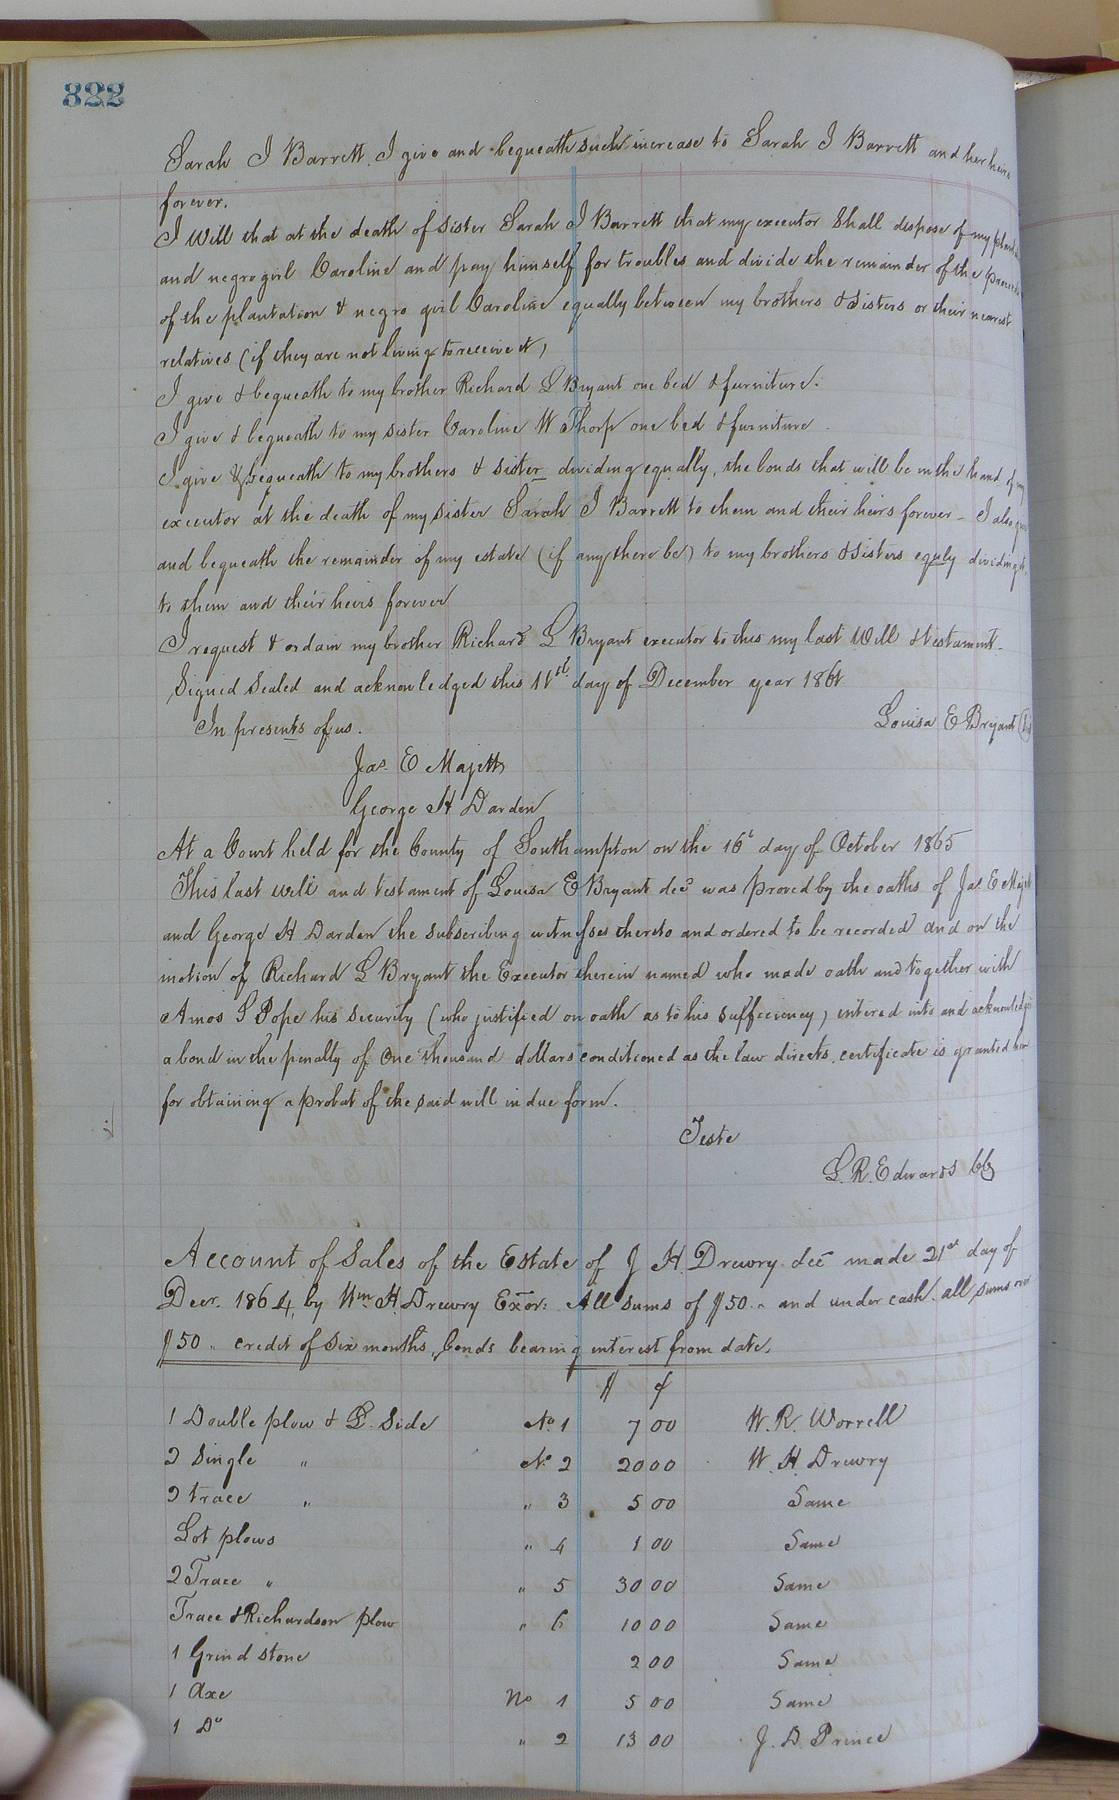 322
Sarah J Barrett. I give and bequeath such increase to Sarah J Barrett and her heirs
forever.
I Will that at the death of sister Sarah J Barrett that my executor Shall dispose of my
and negro girl Caroline and pay himself for troubles and divide the remainder of the proceeds
of the plantation & negro girl Caroline equally between my brothers & Sisters or their nearest
relatives (if they are not living to receive it)
I give & bequeath to my brother Richard L Bryant one bed & furniture.
I give & bequeath to my sister Caroline W Thorp one bed & furniture
I give & bequeath to my brothers & sister dividing equally, the bonds that will be in the hand of my
executor at the death of my sister Sarah J Barrett to them and their heirs forever - I also give
and bequeath the remainder of my estate (if any there be) to my brothers & Sisters equly dividing it
to them and their heirs forever
I request & ordain my brother Richard L Bryant executor to this my last Will & testament.
Signed Sealed and acknowledged this 11th day of December year 1861
In presents of us. Louisa E Bryant
Jas. E Majett
George H Darden
At a Court held for the County of Southampton on the 16t day of October 1865
This last will and testament of Louisa E Bryant decd was proved by the oaths of Jas E Majett
and George H Darden the subscribing witnesses thereto and ordered to be recorded and on the
motion of Richard L Bryant the Executor therein named who made oath and together with
Amos S Pope his Security (who justified on oath as to his sufficiency) entered into and acknowledged
a bond in the penalty of One thousand dollars conditioned as the law directs, certificate is granted him
for obtaining a probat of the said will in due form.
Teste
L. R. Edwards CC
Account of Sales of the Estate of J H. Drewry dec made 21st day of
Decr. 1864, by Wm H. Drewry Exor: All sums of $50 " and under cash. all sums over
$50 " credit of Six months, bonds bearing interest from date.
$ ¢
1 Double plow & L. Side No. 1 7 00 W. R. Worrell
2 Single " No. 2 20 00 W. H. Drewry
2 trace " " 3 5 00 Same
Lot plows " 4 1 00 Same
2 Trace " " 5 30 00 Same
Trace & Richardson plow " 6 10 00 Same
1 Grind stone 2 00 Same
1 Axe No 1 5 00 Same
1 Do " 2 13 00 J. D. Prince